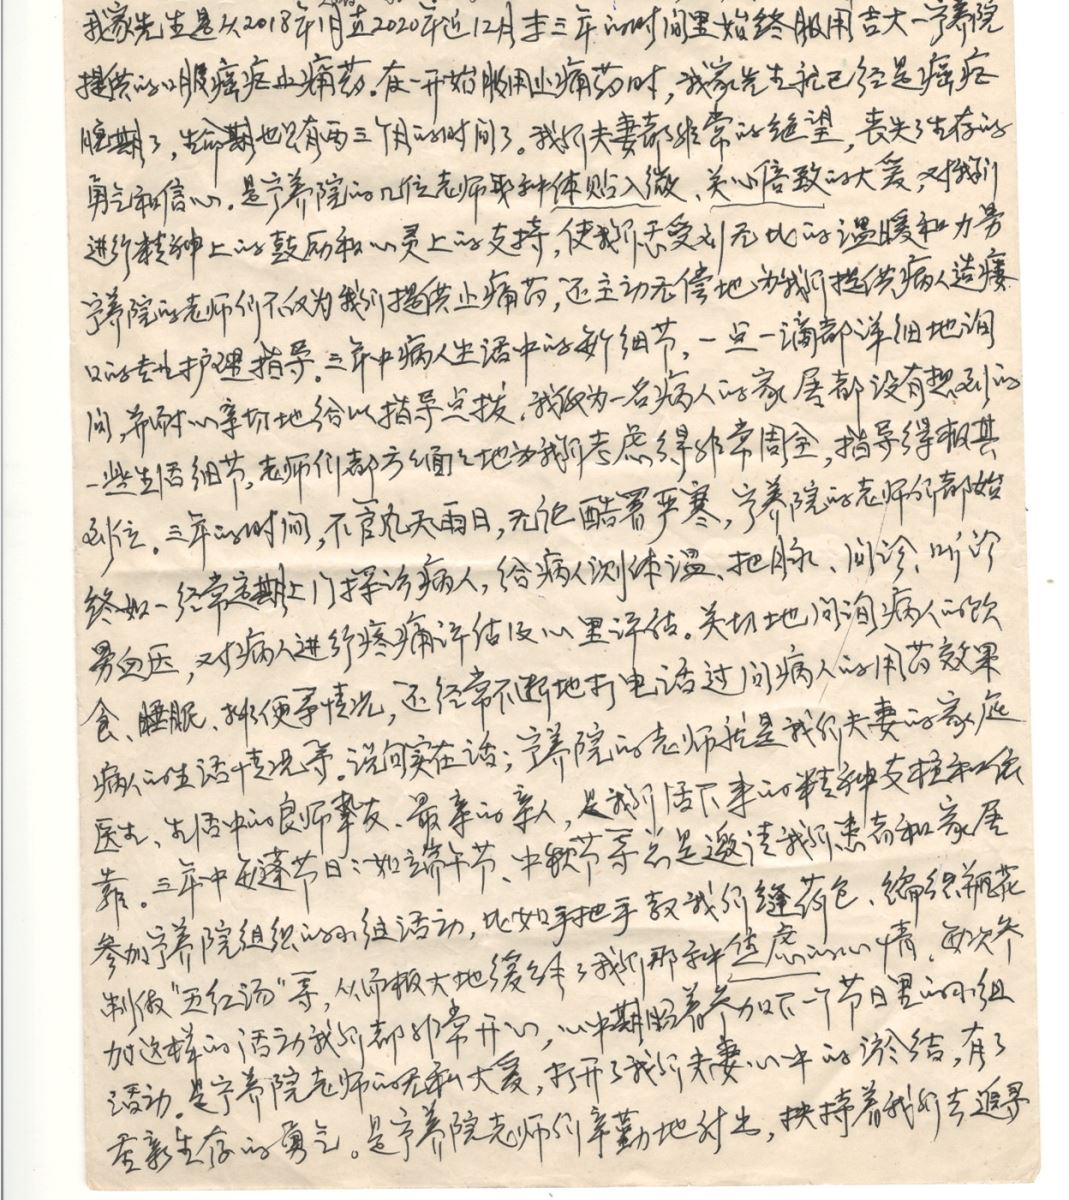 我家先生是从2018年1月直2020年近12月李三年的时间里始终服用吉大一宁养院
提供的口服癌症止痛药。在一开始服用止痛药时，我家先生就已经是癌症
晚期了，生命期也只有两三个月的时间了。我们夫妻都非常的绝望，丧失了生存的
勇气和信心。是宁养院的几位老师那种体贴入微、关心倍致的大爱，对我们
进行精神上的鼓励和心灵上的支持，使我们感受到无比的温暖和力量
宁养院的老师们不仅为我们提供止痛药，还主动无偿地为我们提供病人造瘘
口的专业护理指导。三年中病人生活中的每个细节，一点一滴都详细地询
问，并耐心亲切地给以指导点拨。我做为一名病人的家居都没有想到的
一些生活细节，老师们都方方面面地为我们考虑得非常周全，指导得极其
到位。三年的时间，不管九天雨日，无论酷署严寒，宁养院的老师们都始
终如一经常定期上门探访病人，给病人测体温、把脉、问诊、听诊
量血压，对病人进行疼痛评估及心里评估。关切地问询病人的饮
食、睡眠、排便等情况，还经常不断地打电话过问病人的用药效果
病人的生活情况等。说句实在话；宁养院的老师就是我们夫妻的家庭
医生、生活中的良师挚友、最亲的亲人，是我们活下来的精神支柱和依
靠。三年中每逢节日：如端午节、中秋节等总是邀请我们患者和家居
参加宁养院组织的小组活动，比如手把手教我们缝药包、编织瓶花
制做“五红汤”等，从而极大地缓解了我们那种焦虑的心情。每次参
加这样的活动我们都非常开心，心中期盼着参加下一个节日里的小组
活动。是宁养院老师的无私大爱，打开了我们夫妻心中的淤结，有了
重新生存的勇气。是宁养院老师们辛勤地付出，扶持着我们去追寻